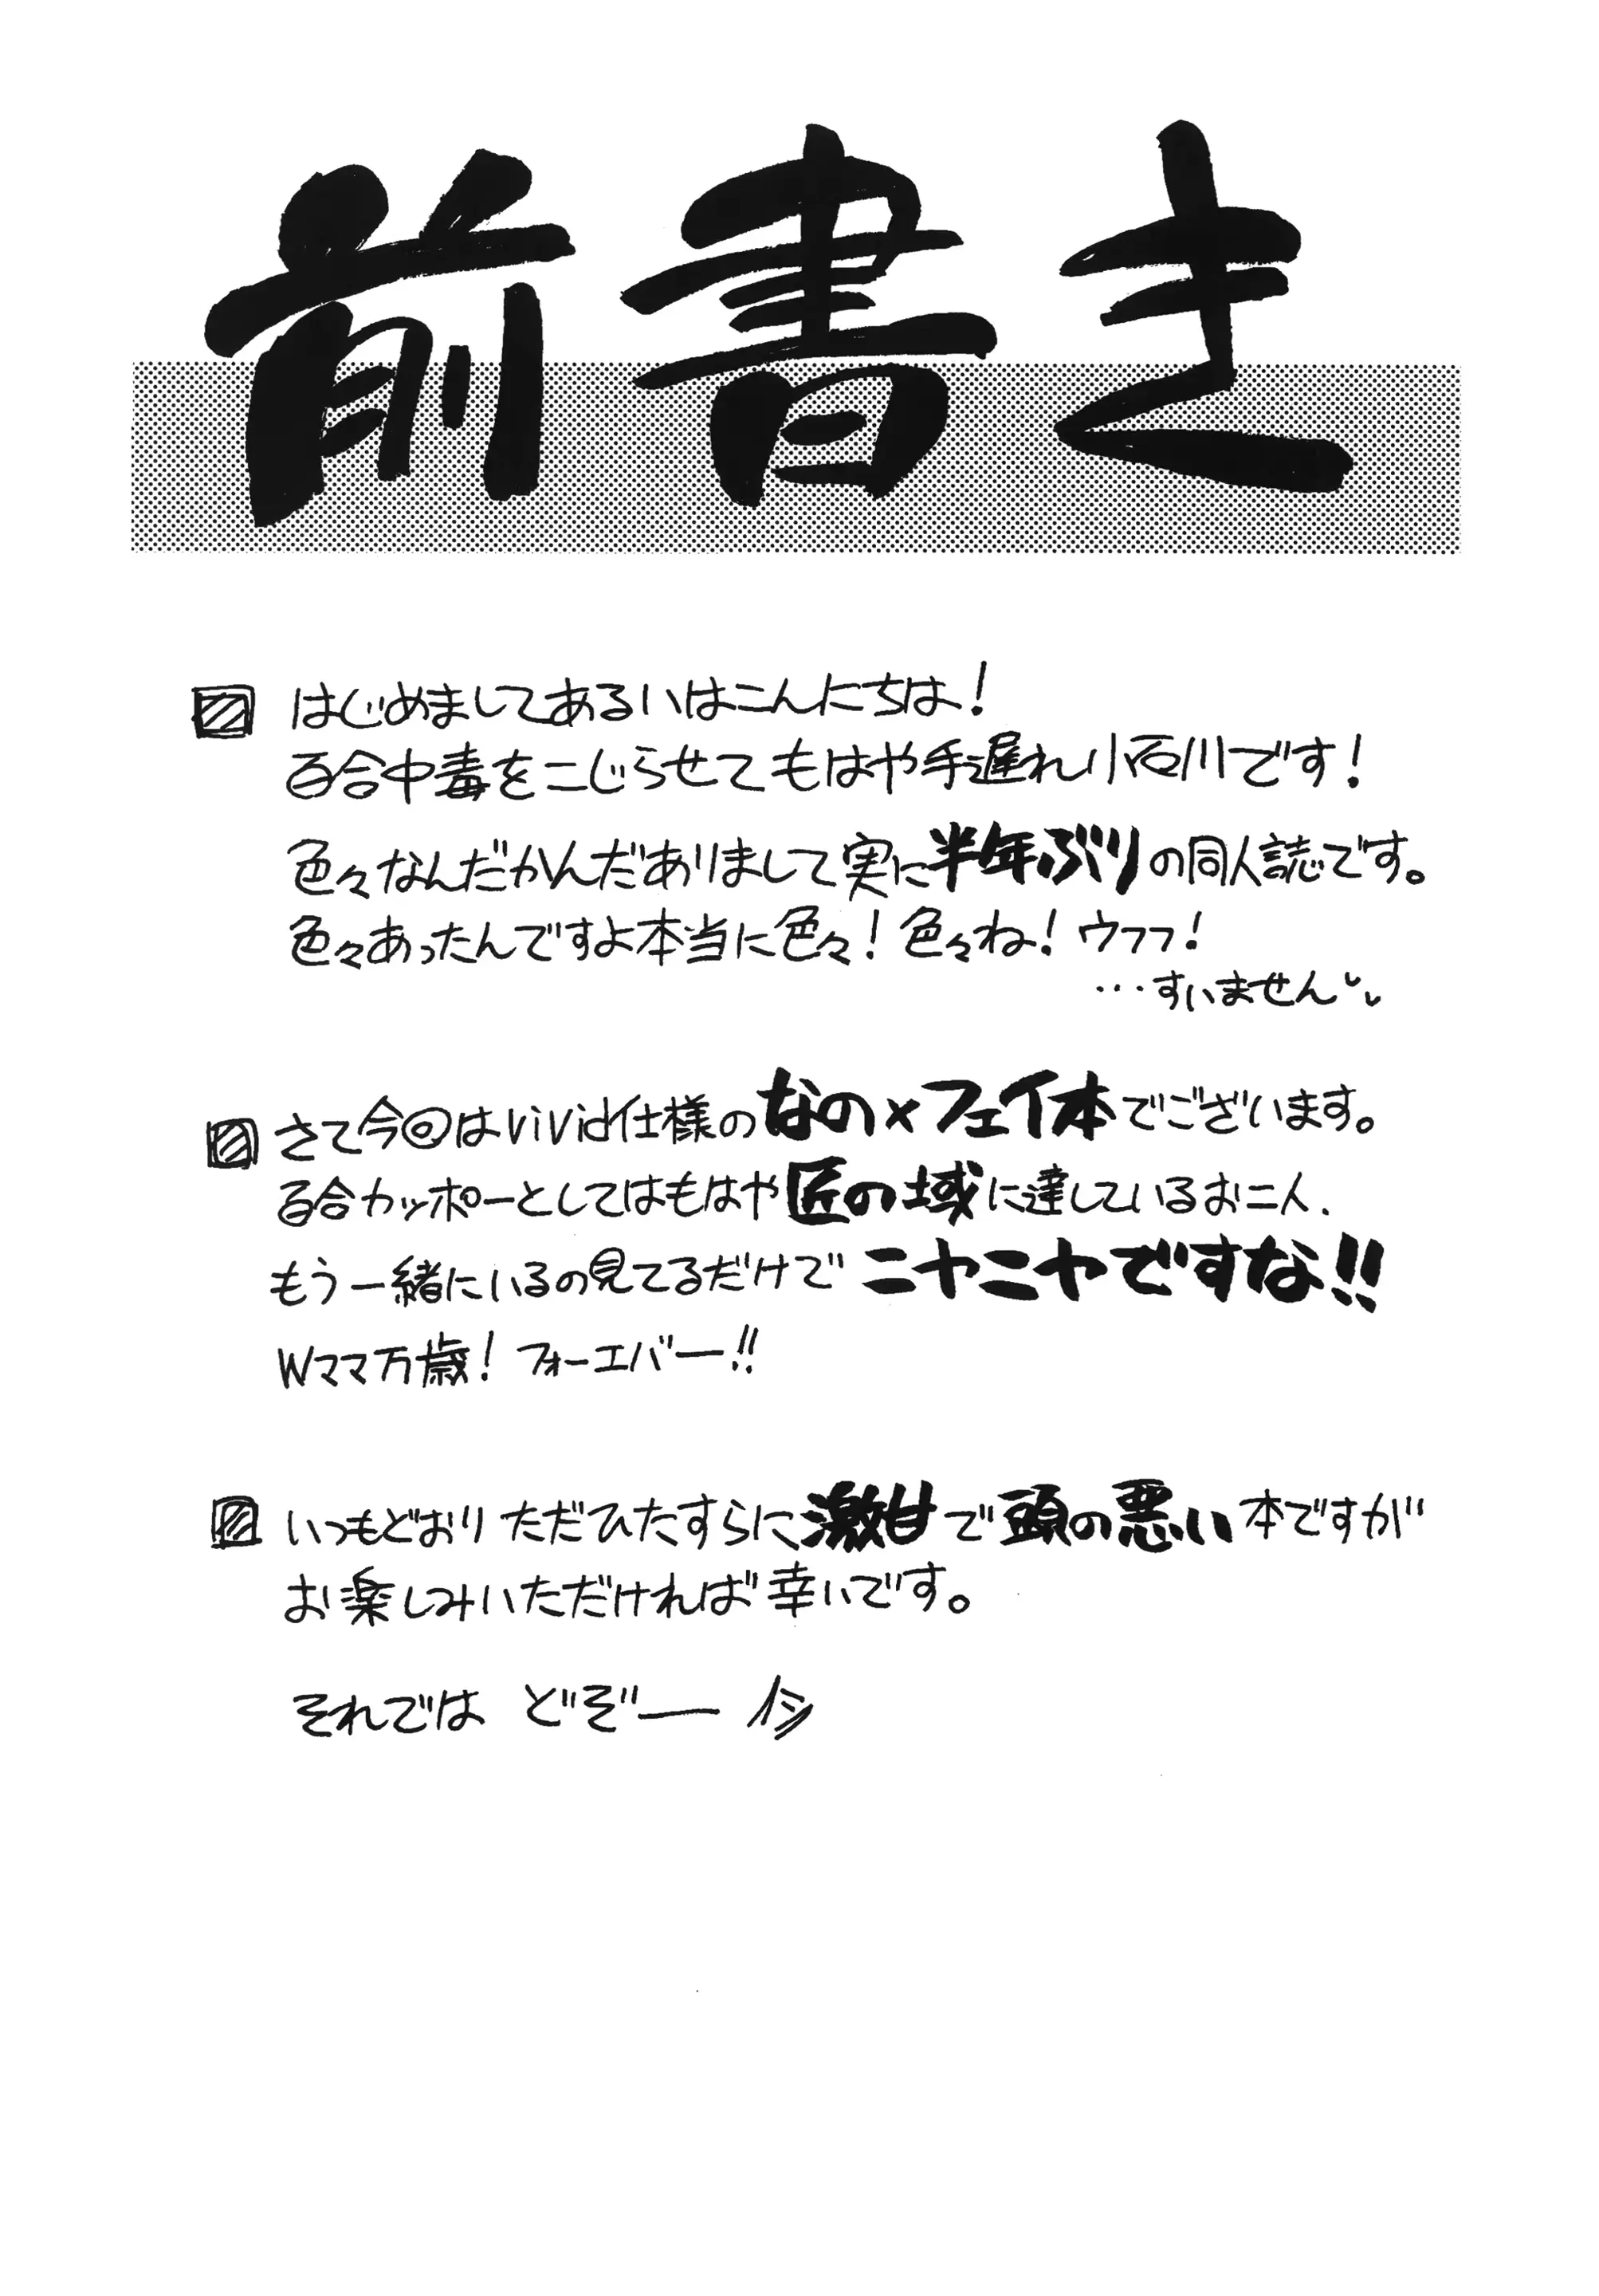 前書き
はじめましてあるいはこんにちは!
百合中毒をこじらせてもはや手遅れ小石川です!
色々なんだかんだありまして実に半年ぶりの同人誌です。
色々あったんですよ本当に色々!色々ね!ウフフ!
…すいません
さて今回はvivid仕様のなの×フェイ本でございます。
百合カッポーとしてはもはや匠の域に達しているお二人、
もう一緒にいるの見てるだけでニヤニヤですな!!
Wママ万歳!フォーエバー!!
いつもどおりただひたすらに激甘で頭の悪い本ですが
お楽しみいただければ幸いです。
それでは どぞー